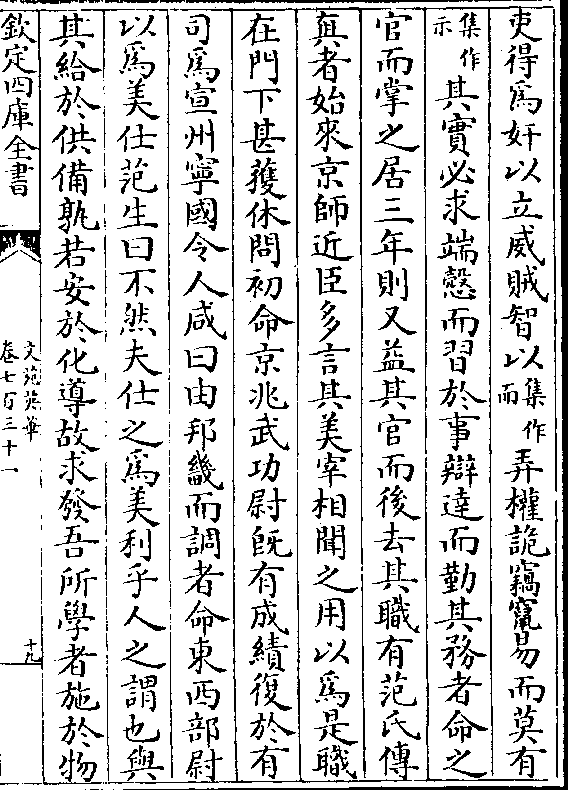 吏得爲奸以立威賊智以集作而弄權詭竊竄易而莫有
集作示其實必求端慤而習於事辯達而勤其務者命之
官而掌之居三年則又益其官而後去其職有范氏傳
眞者始來京師近臣多言其美宰相聞之用以爲是職
在門下甚獲休問初命京兆武功尉旣有成績復於有
司爲宣州寧國令人咸曰由邦畿而調者命東西部尉
以爲美仕范生曰不然夫仕之爲美利乎人之謂也與
其給於供備孰若安於化導故求發吾所學者施於物
欽定四庫全書
文苑英華
卷七百三十一
十九